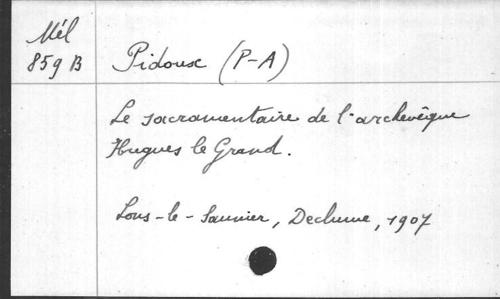 Mél
859 B
Pidoux (P-A)
Le sacramentaire de l'archevêque
Hugues le Grand.
Lons-le-Saunier, Declume, 1907